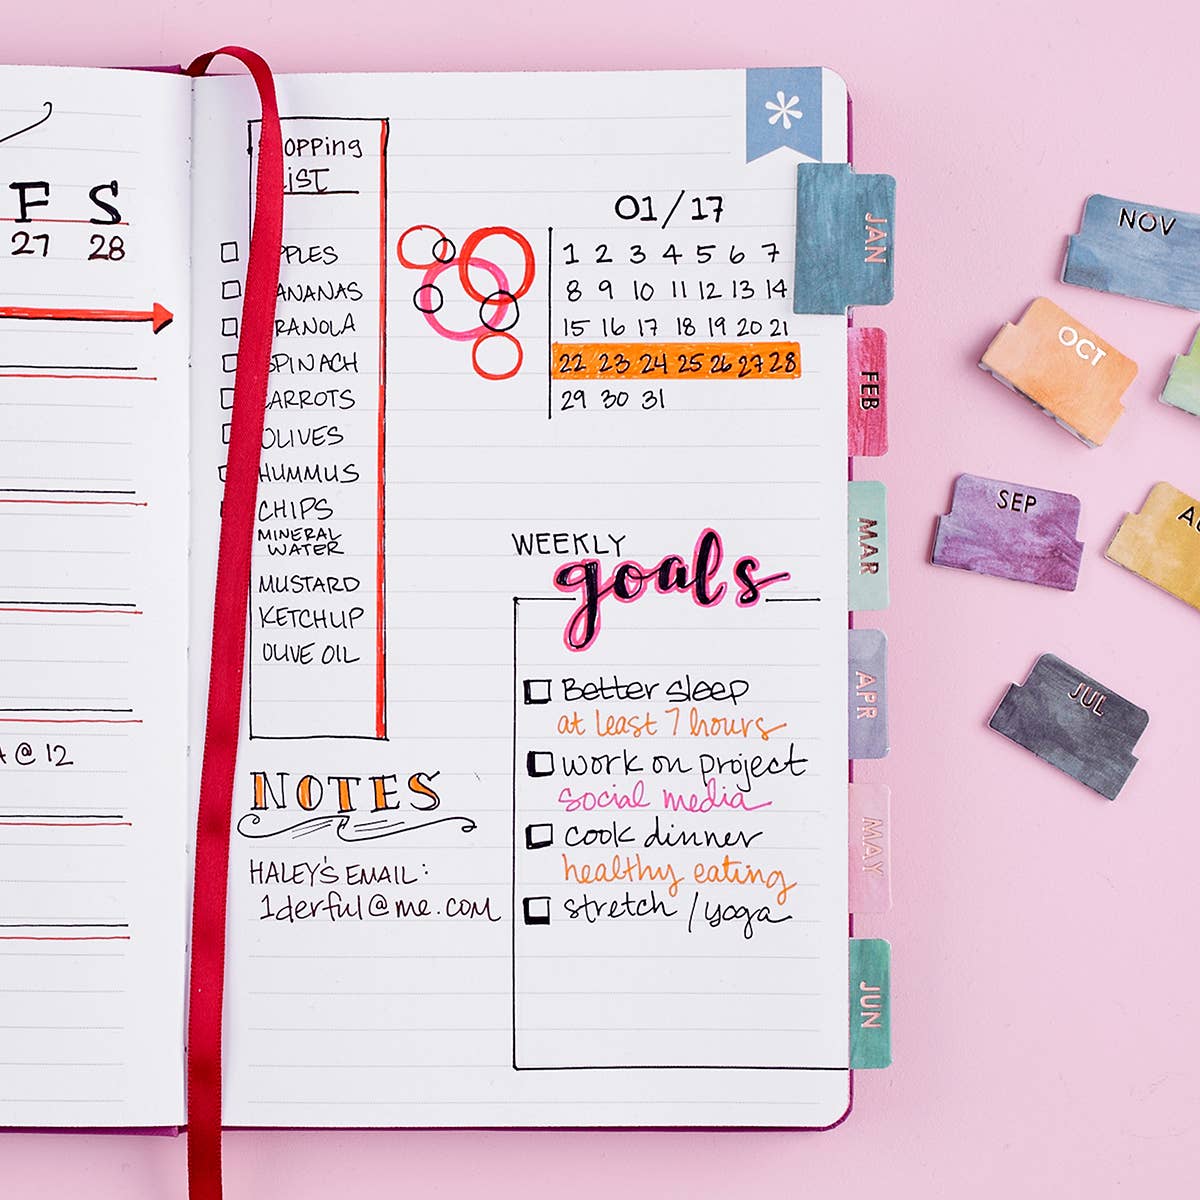 F S
27 28
@ 12
opping
LIST
PPLES
ANANAS
RANOLA
SPINACH
CARROTS
OLIVES
HUMMUS
CHIPS
MINERAL
WATER
MUSTARD
KETCHUP
OLIVE OIL
NOTES
HALEY'S EMAIL:
1derful@me.com
01/17
1 2 3 4 5 6 7
8 9 10 11 12 13 14
15 16 17 18 19 20 21
22 23 24 25 26 27 28
29 30 31
WEEKLY
goals
Better sleep
at least 7 hours
work on project
social media
cook dinner
healthy eating
stretch / yoga
JAN
FEB
MAR
APR
MAY
JUN
NOV
OCT
SEP
JUL